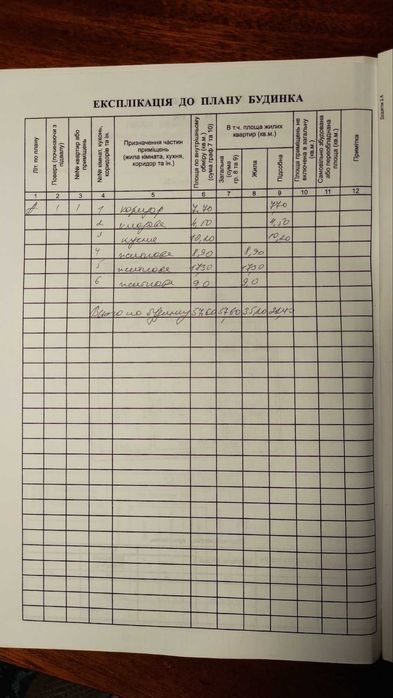 Додаток 1.А
ЕКСПЛІКАЦІЯ ДО ПЛАНУ БУДИНКА
Літ. по плану
Поверх (починаючи з підвалу)
№№ квартир або приміщень
№№ кімнат, кухонь, коридорів та ін.
Призначення частин приміщень (жила кімната, кухня, коридор та ін.)
Площа по внутрішньому обміру (кв.м.) (сума граф 7 та 10)
В т.ч. площа жилих квартир (кв.м.)
Загальна (сума гр. 8 та 9)
Жила
Підсобна
Площа приміщень не включена в загальну (кв.м.)
Самовільно збудована або переобладнана площа (кв.м.)
Примітка
1 2 3 4 5 6 7 8 9 10 11 12
А 1 1 1 коридор 7,70 7,70
2 4,50 4,50
3 кухня 10,20 10,20
4 житлова 8,90 8,90
5 житлова 17,30 17,30
6 житлова 9,0 9,0
Всього по будинку 57,60 57,60 35,20 22,40